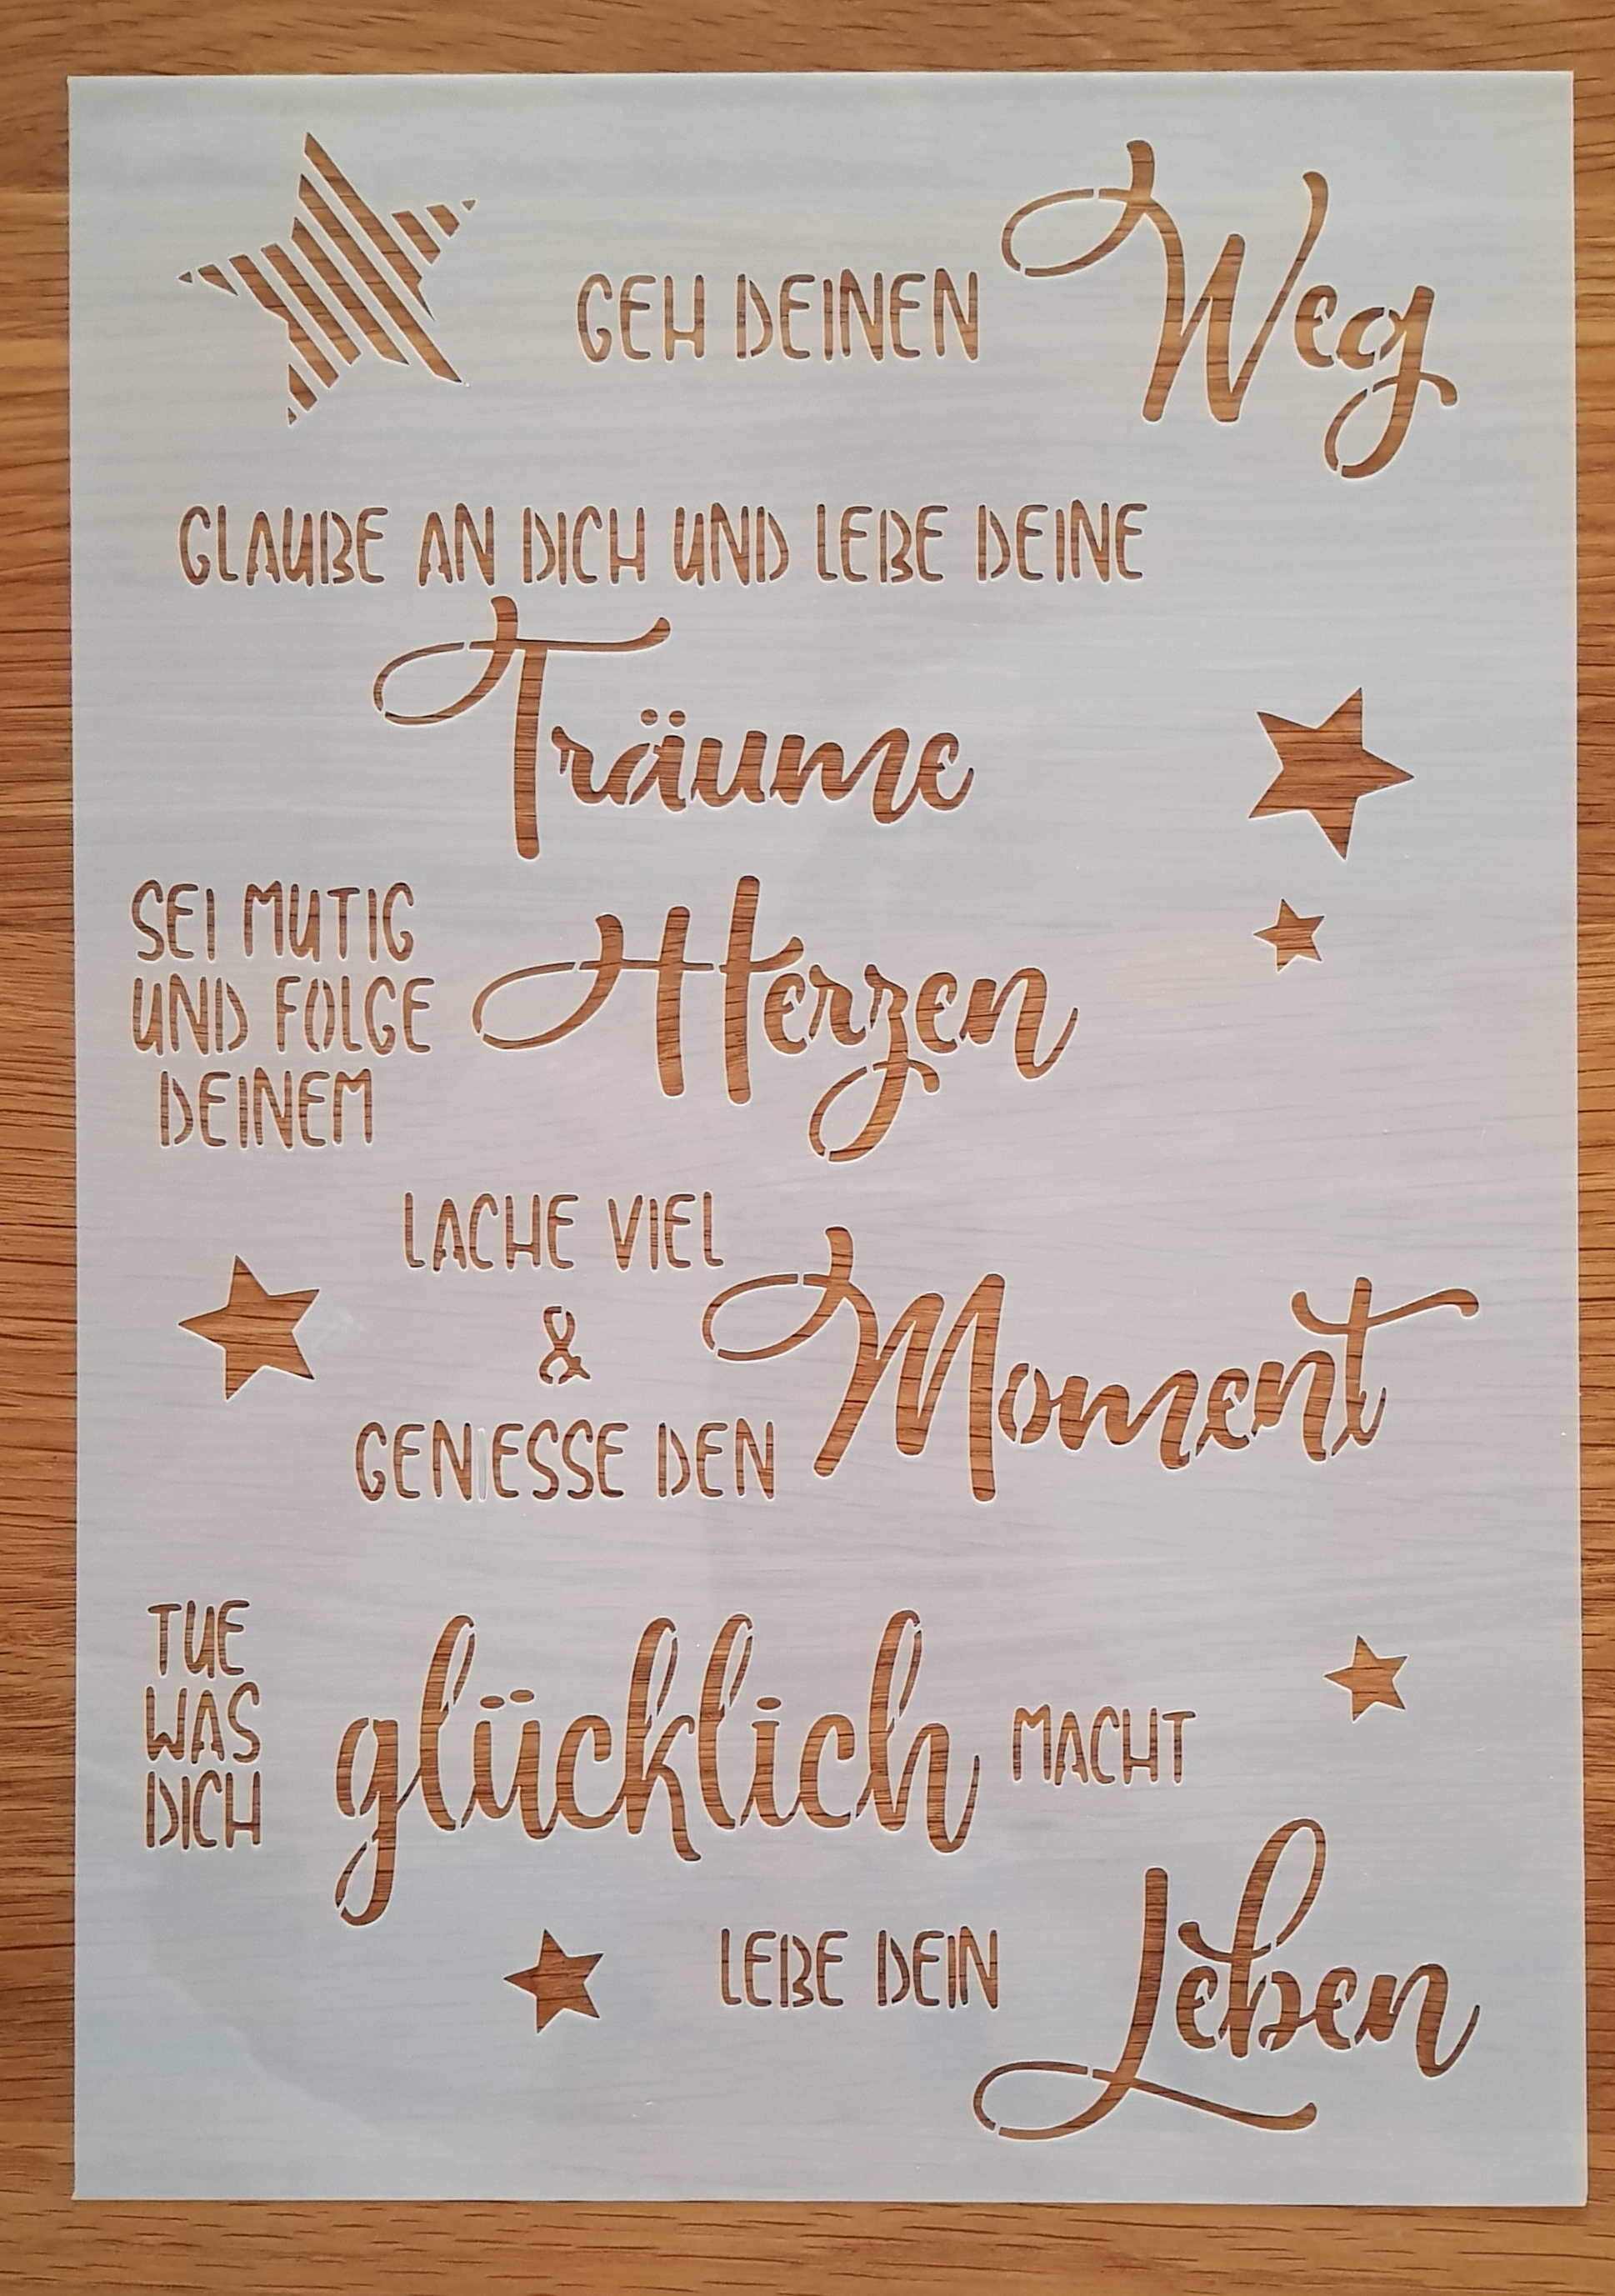 GEH DEINEN Weg
GLAUBE AN DICH UND LEBE DEINE
Träume
SEI MUTIG
UND FOLGE
DEINEM
Herzen
LACHE VIEL
&
GENIESSE DEN
Moment
TUE
WAS
DICH
glücklich MACHT
LEBE DEIN Leben